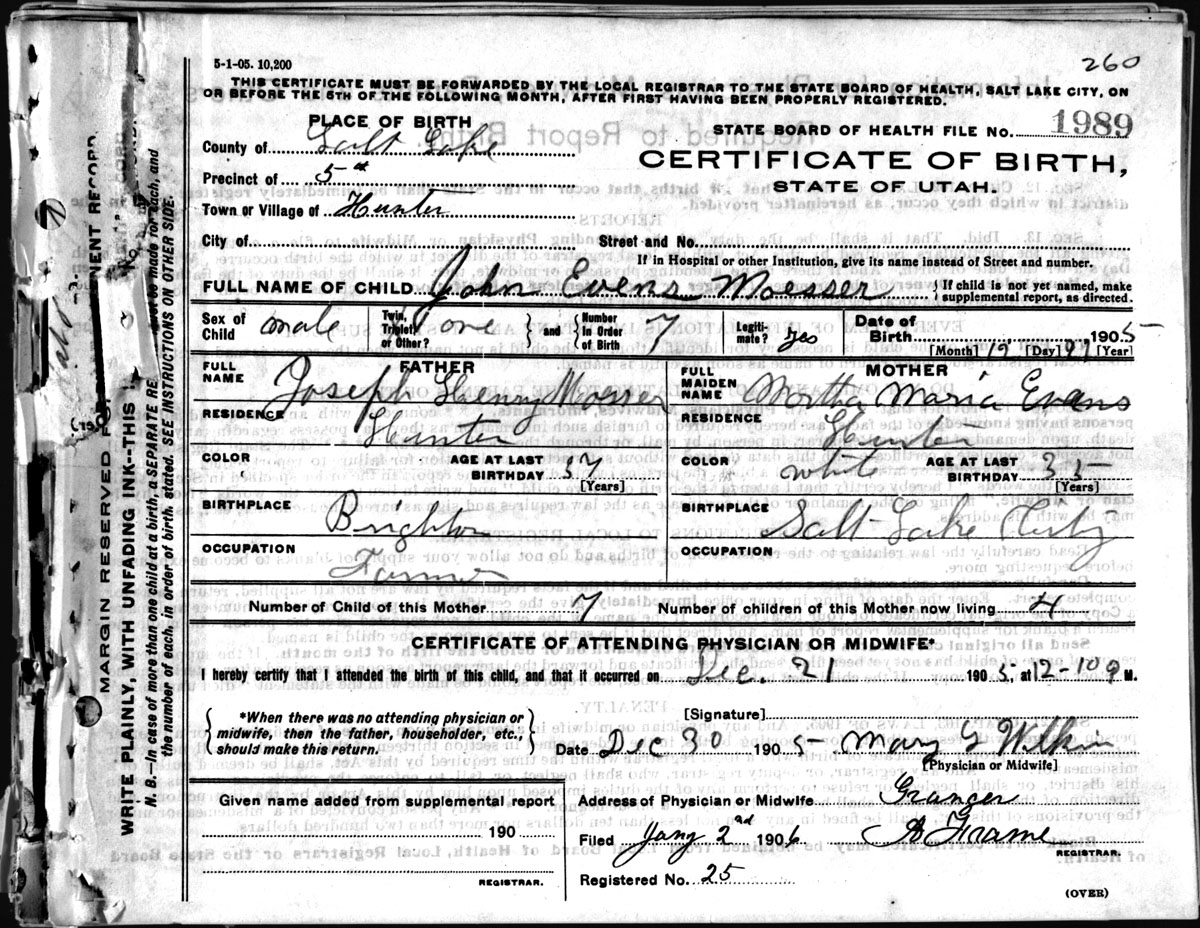 260
5-1-05. 10,200
THIS CERTIFICATE MUST BE FORWARDED BY THE LOCAL REGISTRAR TO THE STATE BOARD OF HEALTH, SALT LAKE CITY, ON
OR BEFORE THE 5TH OF THE FOLLOWING MONTH, AFTER FIRST HAVING BEEN PROPERLY REGISTERED.
PLACE OF BIRTH
STATE BOARD OF HEALTH FILE NO. 1989
County of Salt Lake
CERTIFICATE OF BIRTH,
Precinct of 5th
STATE OF UTAH.
Town or Village of Hunter
City of Street and No.
If in Hospital or other Institution, give its name instead of Street and number.
FULL NAME OF CHILD John Evens Moesser { If child is not yet named, make supplemental report, as directed.
Sex of Child male Twin, Triplet, or Other? } one } and { Number in Order of Birth 7 Legitimate? Yes Date of Birth 1905
[Month] 12 [Day] 21 [Year]
FATHER
MOTHER
FULL NAME Joseph Henry Mosser
FULL MAIDEN NAME Martha Maria Evans
RESIDENCE Hunter
RESIDENCE Hunter
COLOR AGE AT LAST BIRTHDAY 37 [Years]
COLOR white AGE AT LAST BIRTHDAY 35 [Years]
BIRTHPLACE Brighton
BIRTHPLACE Salt Lake City
OCCUPATION Farmer
OCCUPATION
Number of Child of this Mother 7 Number of children of this Mother now living 4
CERTIFICATE OF ATTENDING PHYSICIAN OR MIDWIFE*
I hereby certify that I attended the birth of this child, and that it occurred on Dec. 21 1905, at 12-10 M.
{ *When there was no attending physician or midwife, then the father, householder, etc., should make this return. }
[Signature]
Date Dec 30 1905 Mary G Wilkin
[Physician or Midwife]
Given name added from supplemental report
Address of Physician or Midwife Granger
190
Filed Jany 2nd 1906 A Frame
REGISTRAR.
REGISTRAR.
Registered No. 25
(OVER)
MARGIN RESERVED
WRITE PLAINLY, WITH UNFADING INK—THIS
NENT RECORD
N. B.—In case of more than one child at a birth, a SEPARATE RE must be made for each, and
the number of each, in order of birth, stated. SEE INSTRUCTIONS ON OTHER SIDE.